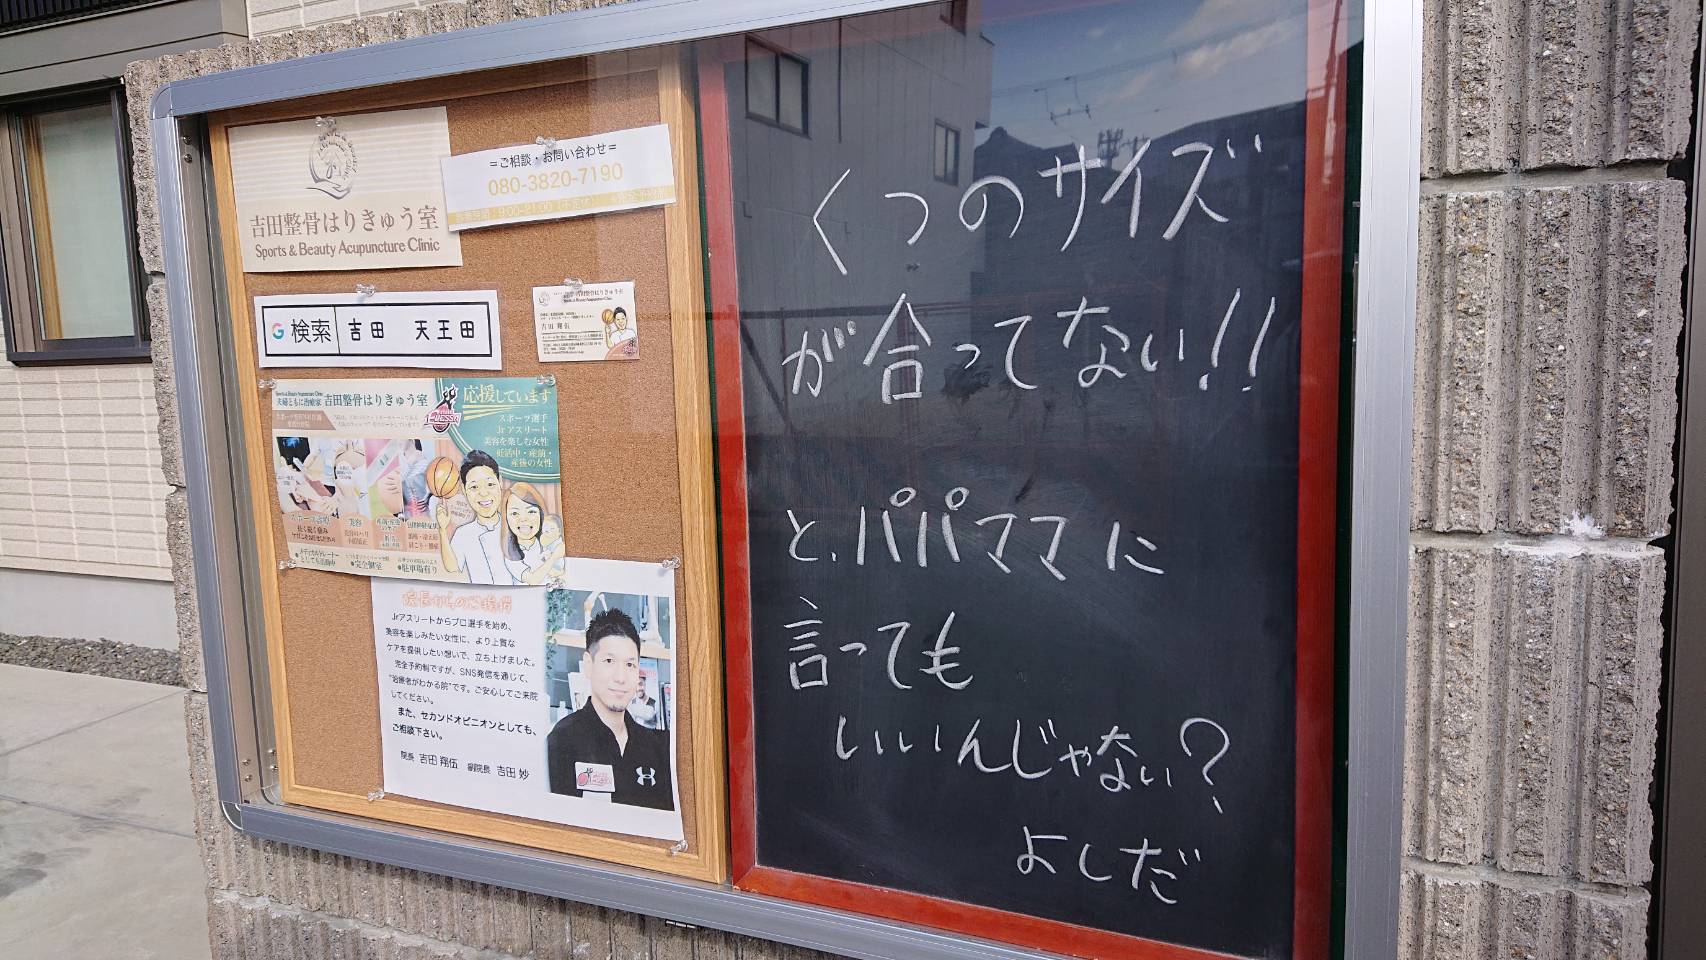 吉田整骨はりきゅう室
Sports & Beauty Acupuncture Clinic
＝ご相談・お問い合わせ＝
080-3820-7190
G 検索 吉田 天王田
吉田整骨はりきゅう室
吉田 翔伍
夫婦ともに治療家 吉田整骨はりきゅう室
応援しています
スポーツ選手
Jr アスリート
美容を楽しむ女性
妊活中・産前・
産後の女性
スポーツ診療
美容
•完全個室
•駐車場有り
院長からのご挨拶
Jrアスリートからプロ選手を始め、
美容を楽しみたい女性に、より上質な
ケアを提供したい想いで、立ち上げました。
完全予約制ですが、SNS発信を通じて、
"治療者がわかる院"です。ご安心してご来院
してください。
また、セカンドオピニオンとしても、
ご相談下さい。
院長 吉田 翔伍 副院長 吉田 妙
くつのサイズ
が合ってない!!
と、パパママに
言っても
いいんじゃない?
よしだ